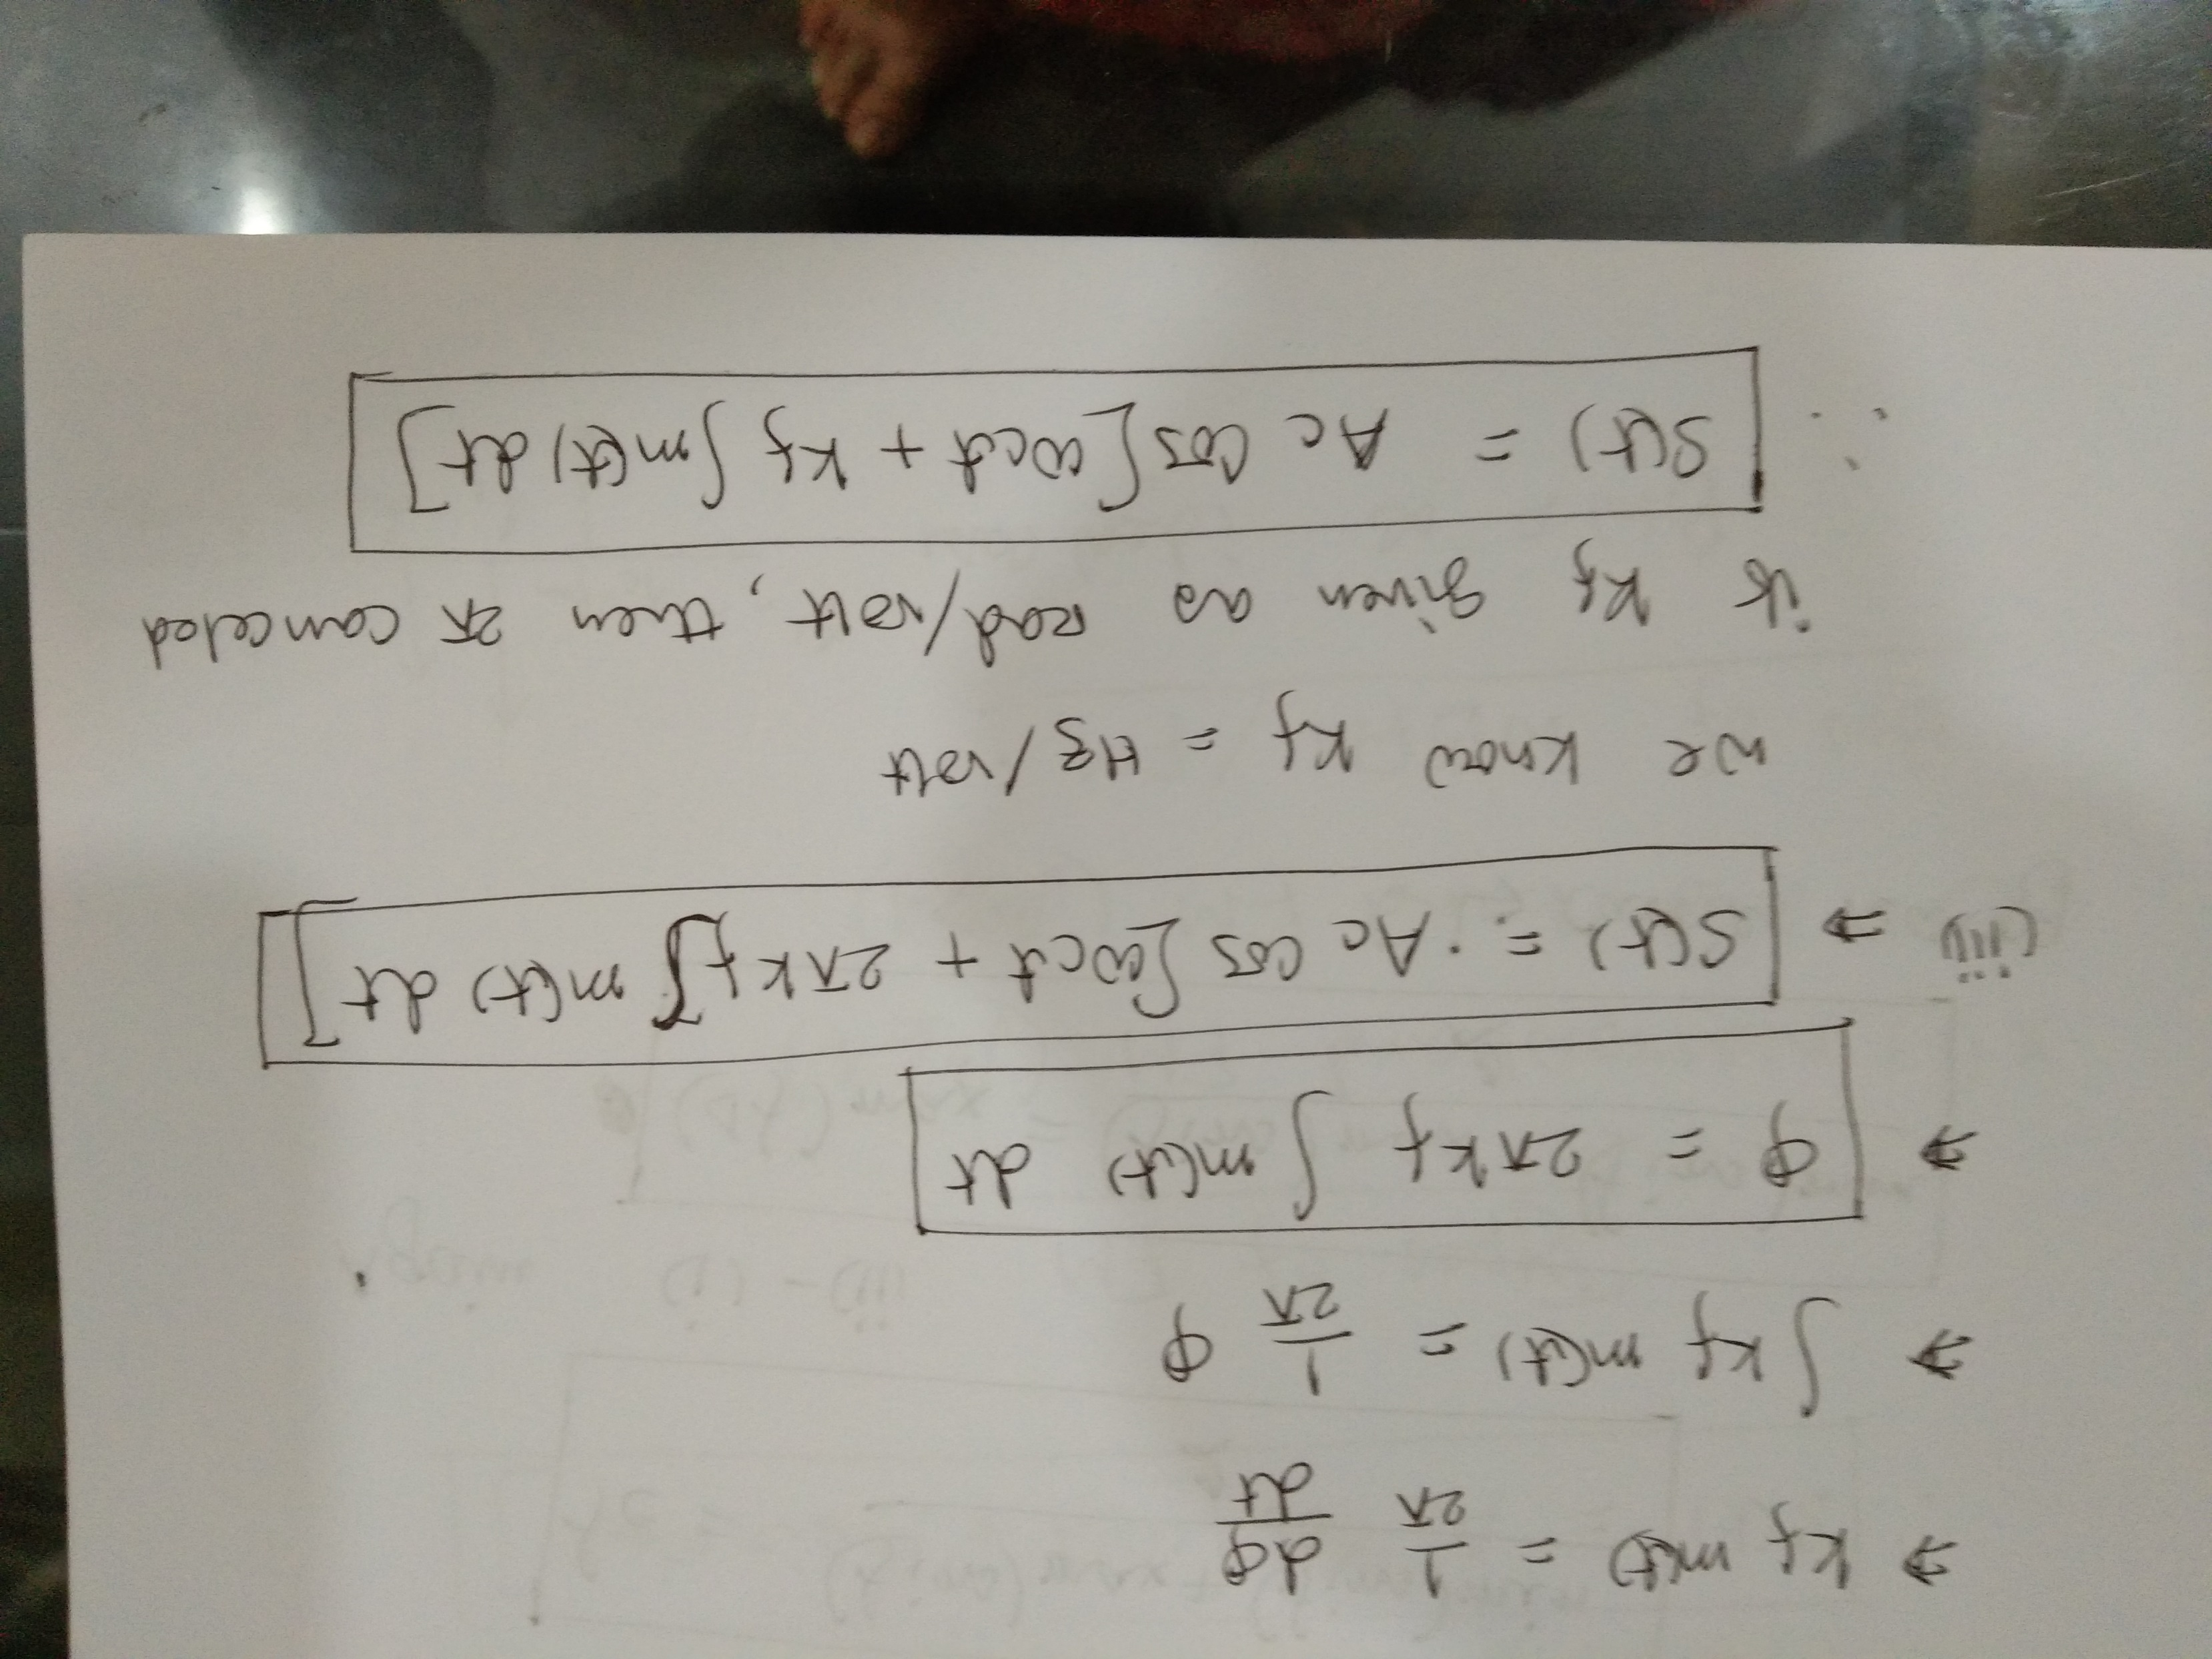 ⇒ Kf m(t) = 1/2π dφ/dt
⇒ ∫ Kf m(t) = 1/2π φ
⇒ φ = 2πKf ∫ m(t) dt
(iii) ⇒ S(t) = Ac Cos[ωct + 2πKf ∫ m(t) dt]
we know Kf = Hz/volt
if Kf given as rad/volt, then 2π canceled
∴ S(t) = Ac Cos[ωct + Kf ∫ m(t) dt]